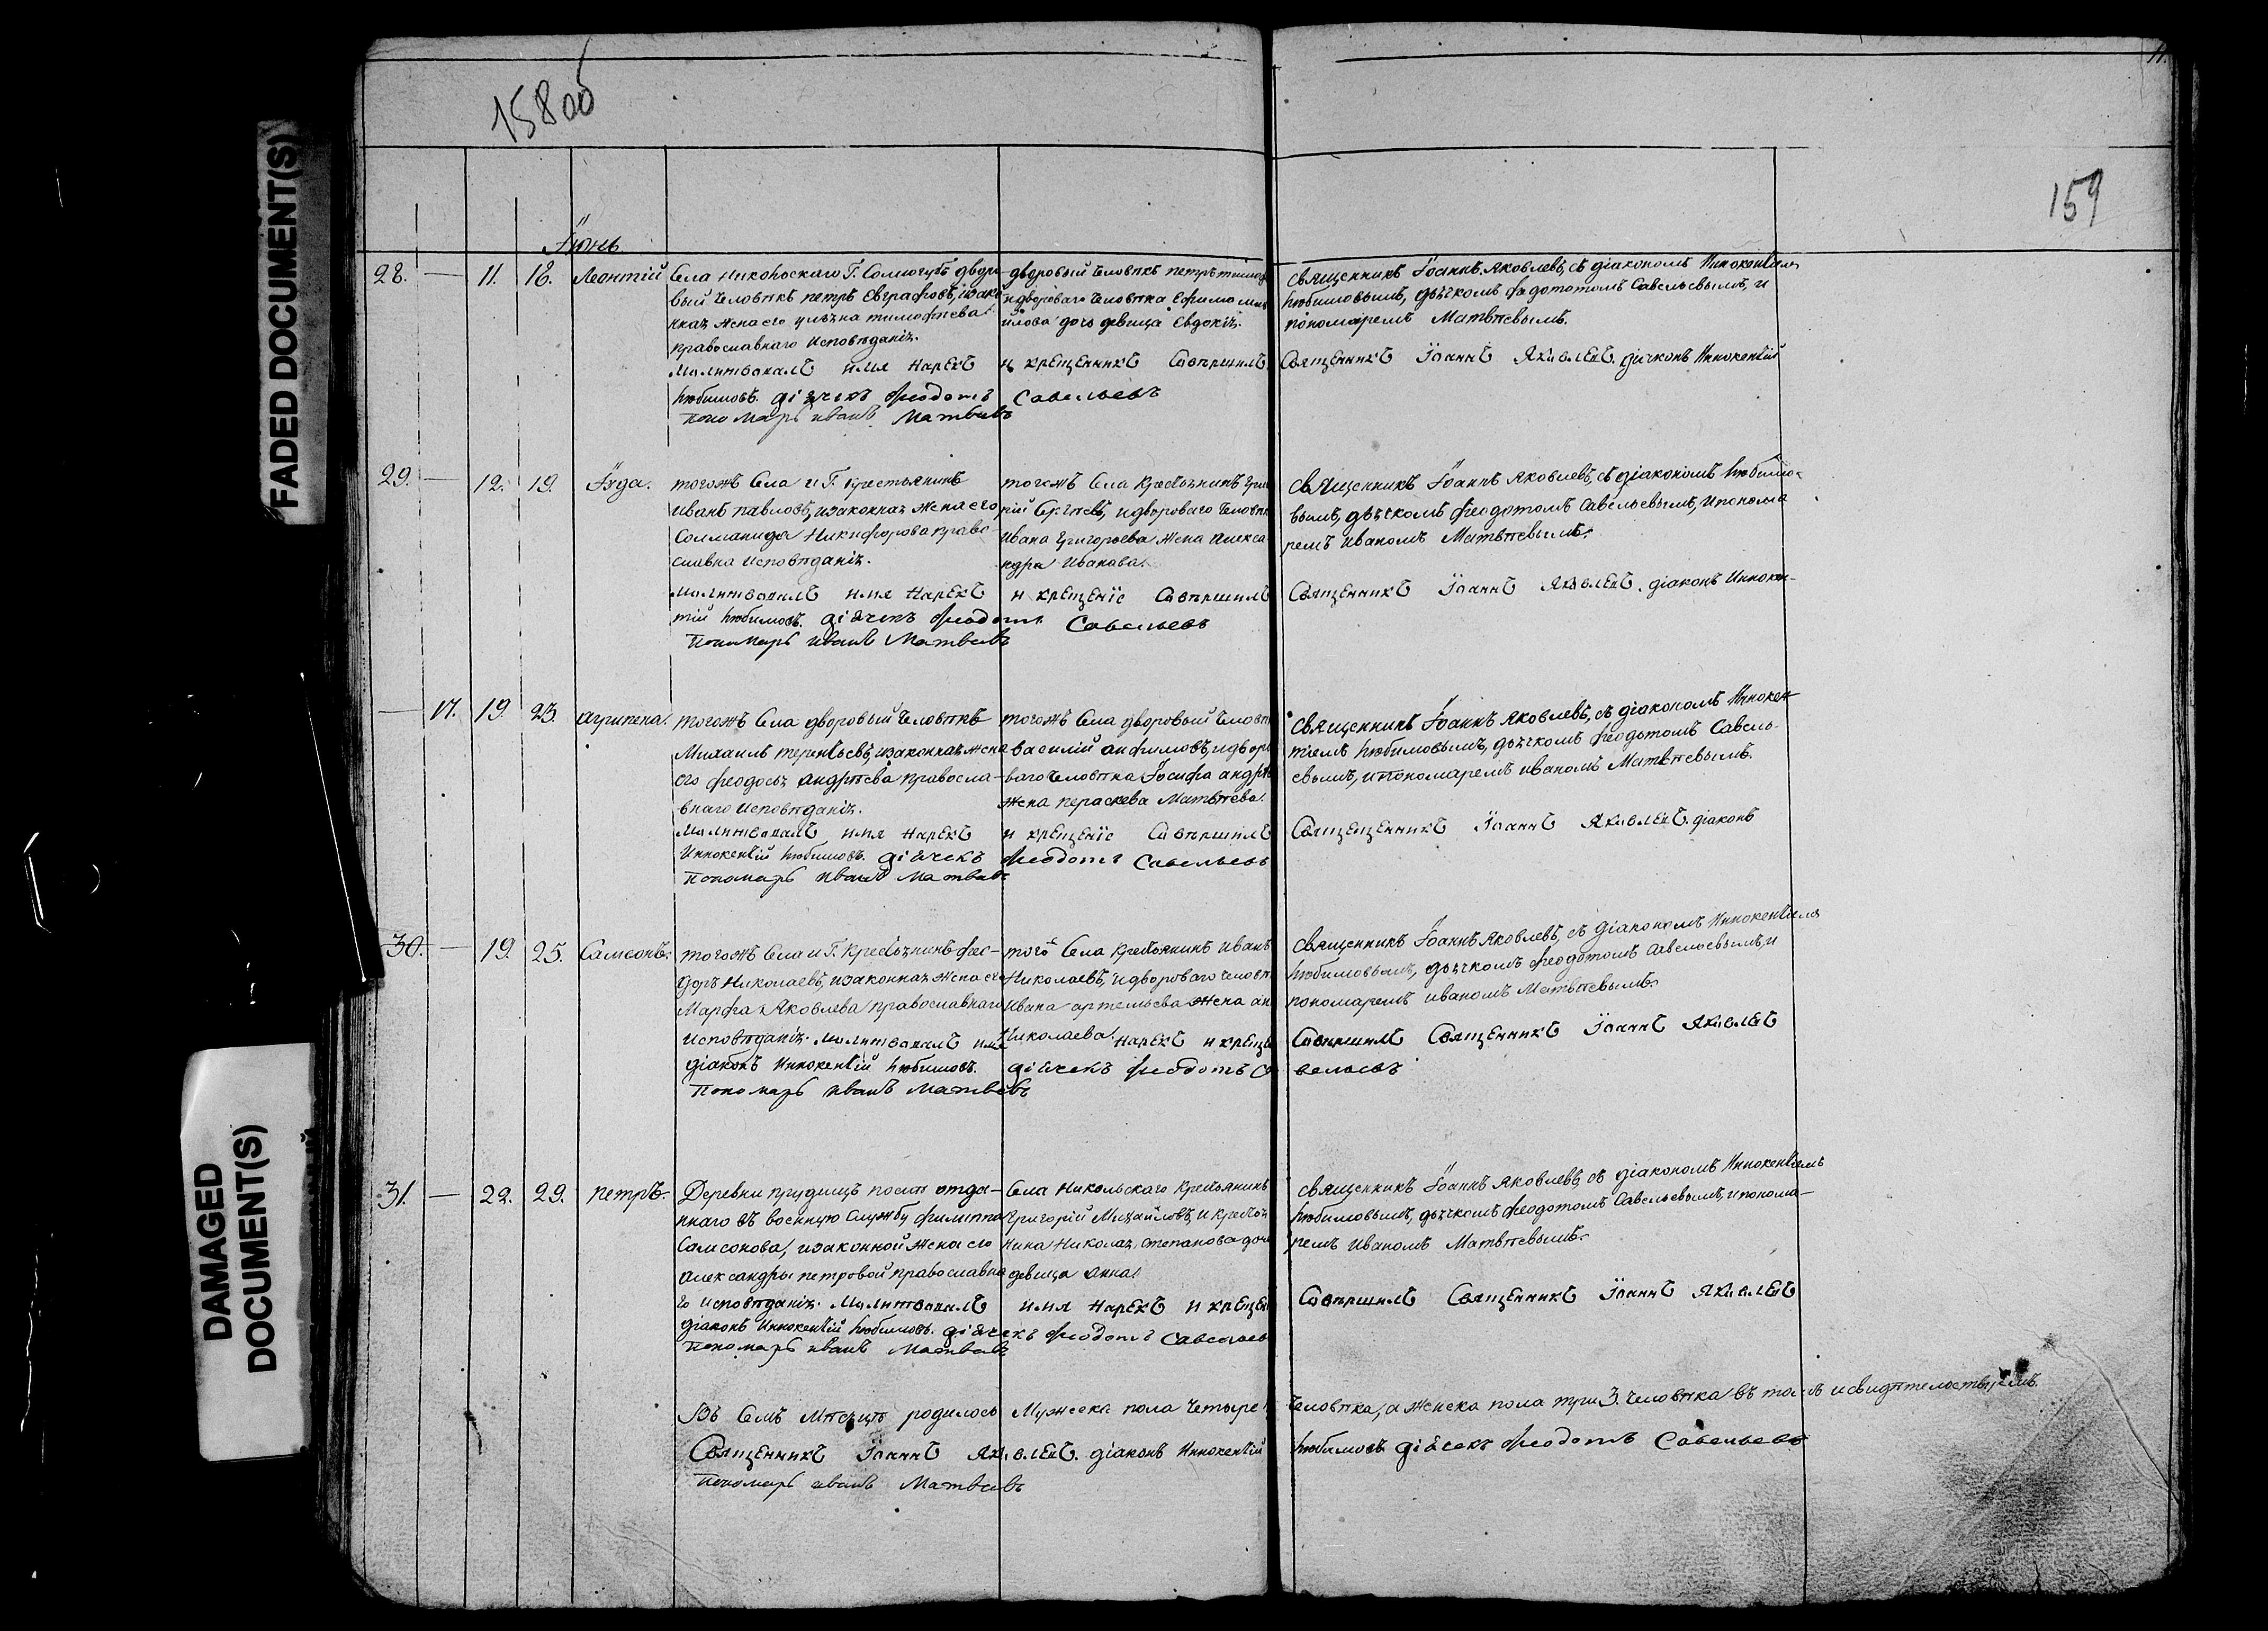 15800
11.
159
FADED DOCUMENT(S)
DAMAGED
DOCUMENT(S)
Іюнь
28. — 11. 18. Леонтій
Села Никольскаго Г. Сологубъ дворо-
вый человѣкъ петръ Евграфовъ, изако-
нная жена его улѣяна тимофѣева
православнаго исповѣданія.
дворовый человѣкъ петръ
идвороваго человѣка Ефима
йлова дочь девица Евдокія.
священникъ Іоаннъ Яковлевъ, съ діакономъ Иннокентіемъ
Любимовымъ, дьячкомъ федотомъ Савельевымъ, и
пономаремъ Матвѣевымъ.
молитвовалъ имя нарекъ и крещеніе совершилъ Священникъ Іоаннъ Яковлевъ. діаконъ Иннокентій
Любимовъ. діячекъ Феодотъ Савельевъ
пономарь иванъ Матвѣевъ
29. — 12. 19. Іуда.
тогожъ Села и Г. крестьянинъ
иванъ павловъ, изаконная жена его
Соломанида Никифорова право-
славна исповѣданія.
тогожъ Села крестьянинъ григо
рій Сергѣевъ, идвороваго человѣка
ивана григорьева жена Алекса
ндра Иванова.
священникъ Іоаннъ Яковлевъ, съ діакономъ Любимо-
вымъ, дьячкомъ феодотомъ Савельевымъ, ипонома
ремъ иваномъ Матвѣевымъ.
молитвовалъ имя нарекъ и крещеніе совершилъ Священникъ Іоаннъ Яковлевъ. діаконъ Иннокен-
тій Любимовъ. діячекъ Феодотъ Савельевъ
пономарь иванъ Матвѣевъ
— 17. 19. 23. агрипена.
тогожъ Села дворовый человѣкъ
Михаилъ терентьевъ, изаконная жена
его феодосья андрѣева правосла-
внаго исповѣданія.
тогожъ Села дворовый человѣ
василій анфимовъ, идворо
ваго человѣка Іосифа андрѣ
жена параскева Матвѣева.
священникъ Іоаннъ Яковлевъ, съ діакономъ Иннокен-
тіемъ Любимовымъ, дьячкомъ феодотомъ Савель-
евымъ, ипономаремъ иваномъ Матвѣевымъ.
молитвовалъ имя нарекъ и крещеніе совершилъ Священникъ Іоаннъ Яковлевъ. діаконъ
Иннокентій Любимовъ. діячекъ Феодотъ Савельевъ
пономарь иванъ Матвѣевъ
30. — 19. 25. Самсонъ.
тогожъ Села и Г. крестьянинъ фео-
доръ Николаевъ, изаконная жена его
Марфа Яковлева православнаго
исповѣданія.
того Села крестьянинъ иванъ
Николаевъ, идвороваго человѣ
ивана артемьева жена ан
Николаева.
священникъ Іоаннъ Яковлевъ, съ діакономъ Иннокентіемъ
Любимовымъ, дьячкомъ феодотомъ Савельевымъ, и
пономаремъ иваномъ Матвѣевымъ.
молитвовалъ имя нарекъ и креще Совершилъ Священникъ Іоаннъ Яковлевъ
діаконъ Иннокентій Любимовъ. діячекъ Феодотъ Са вельевъ
пономарь иванъ Матвѣевъ
31. — 22. 29. петръ.
Деревни прудищъ послѣ отда-
ннаго въ военную Службу филиппа
Самсонова, изаконной жены его
Александры петровой православна
го исповѣданія.
Села Никольскаго крестьянинъ
Григорій Михайловъ, и крестья
нина Николая Степанова доч
девица анна.
священникъ Іоаннъ Яковлевъ, съ діакономъ Иннокентіемъ
Любимовымъ, дьячкомъ феодотомъ Савельевымъ, ипонома-
ремъ иваномъ Матвѣевымъ.
Молитвовалъ имя нарекъ и крещен Совершилъ Священникъ Іоаннъ Яковлевъ
діаконъ Иннокентій Любимовъ. діячекъ Феодотъ Савельев
пономарь иванъ Матвѣевъ
Въ Семъ Мѣсяцѣ родилось Мужеска пола четыре человѣка, а женска пола три 3. человѣка въ томъ исвидѣтельствуемъ.
Священникъ Іоаннъ Яковлевъ. діаконъ Иннокентій Любимовъ діячекъ Феодотъ Савельевъ
пономарь иванъ Матвѣевъ